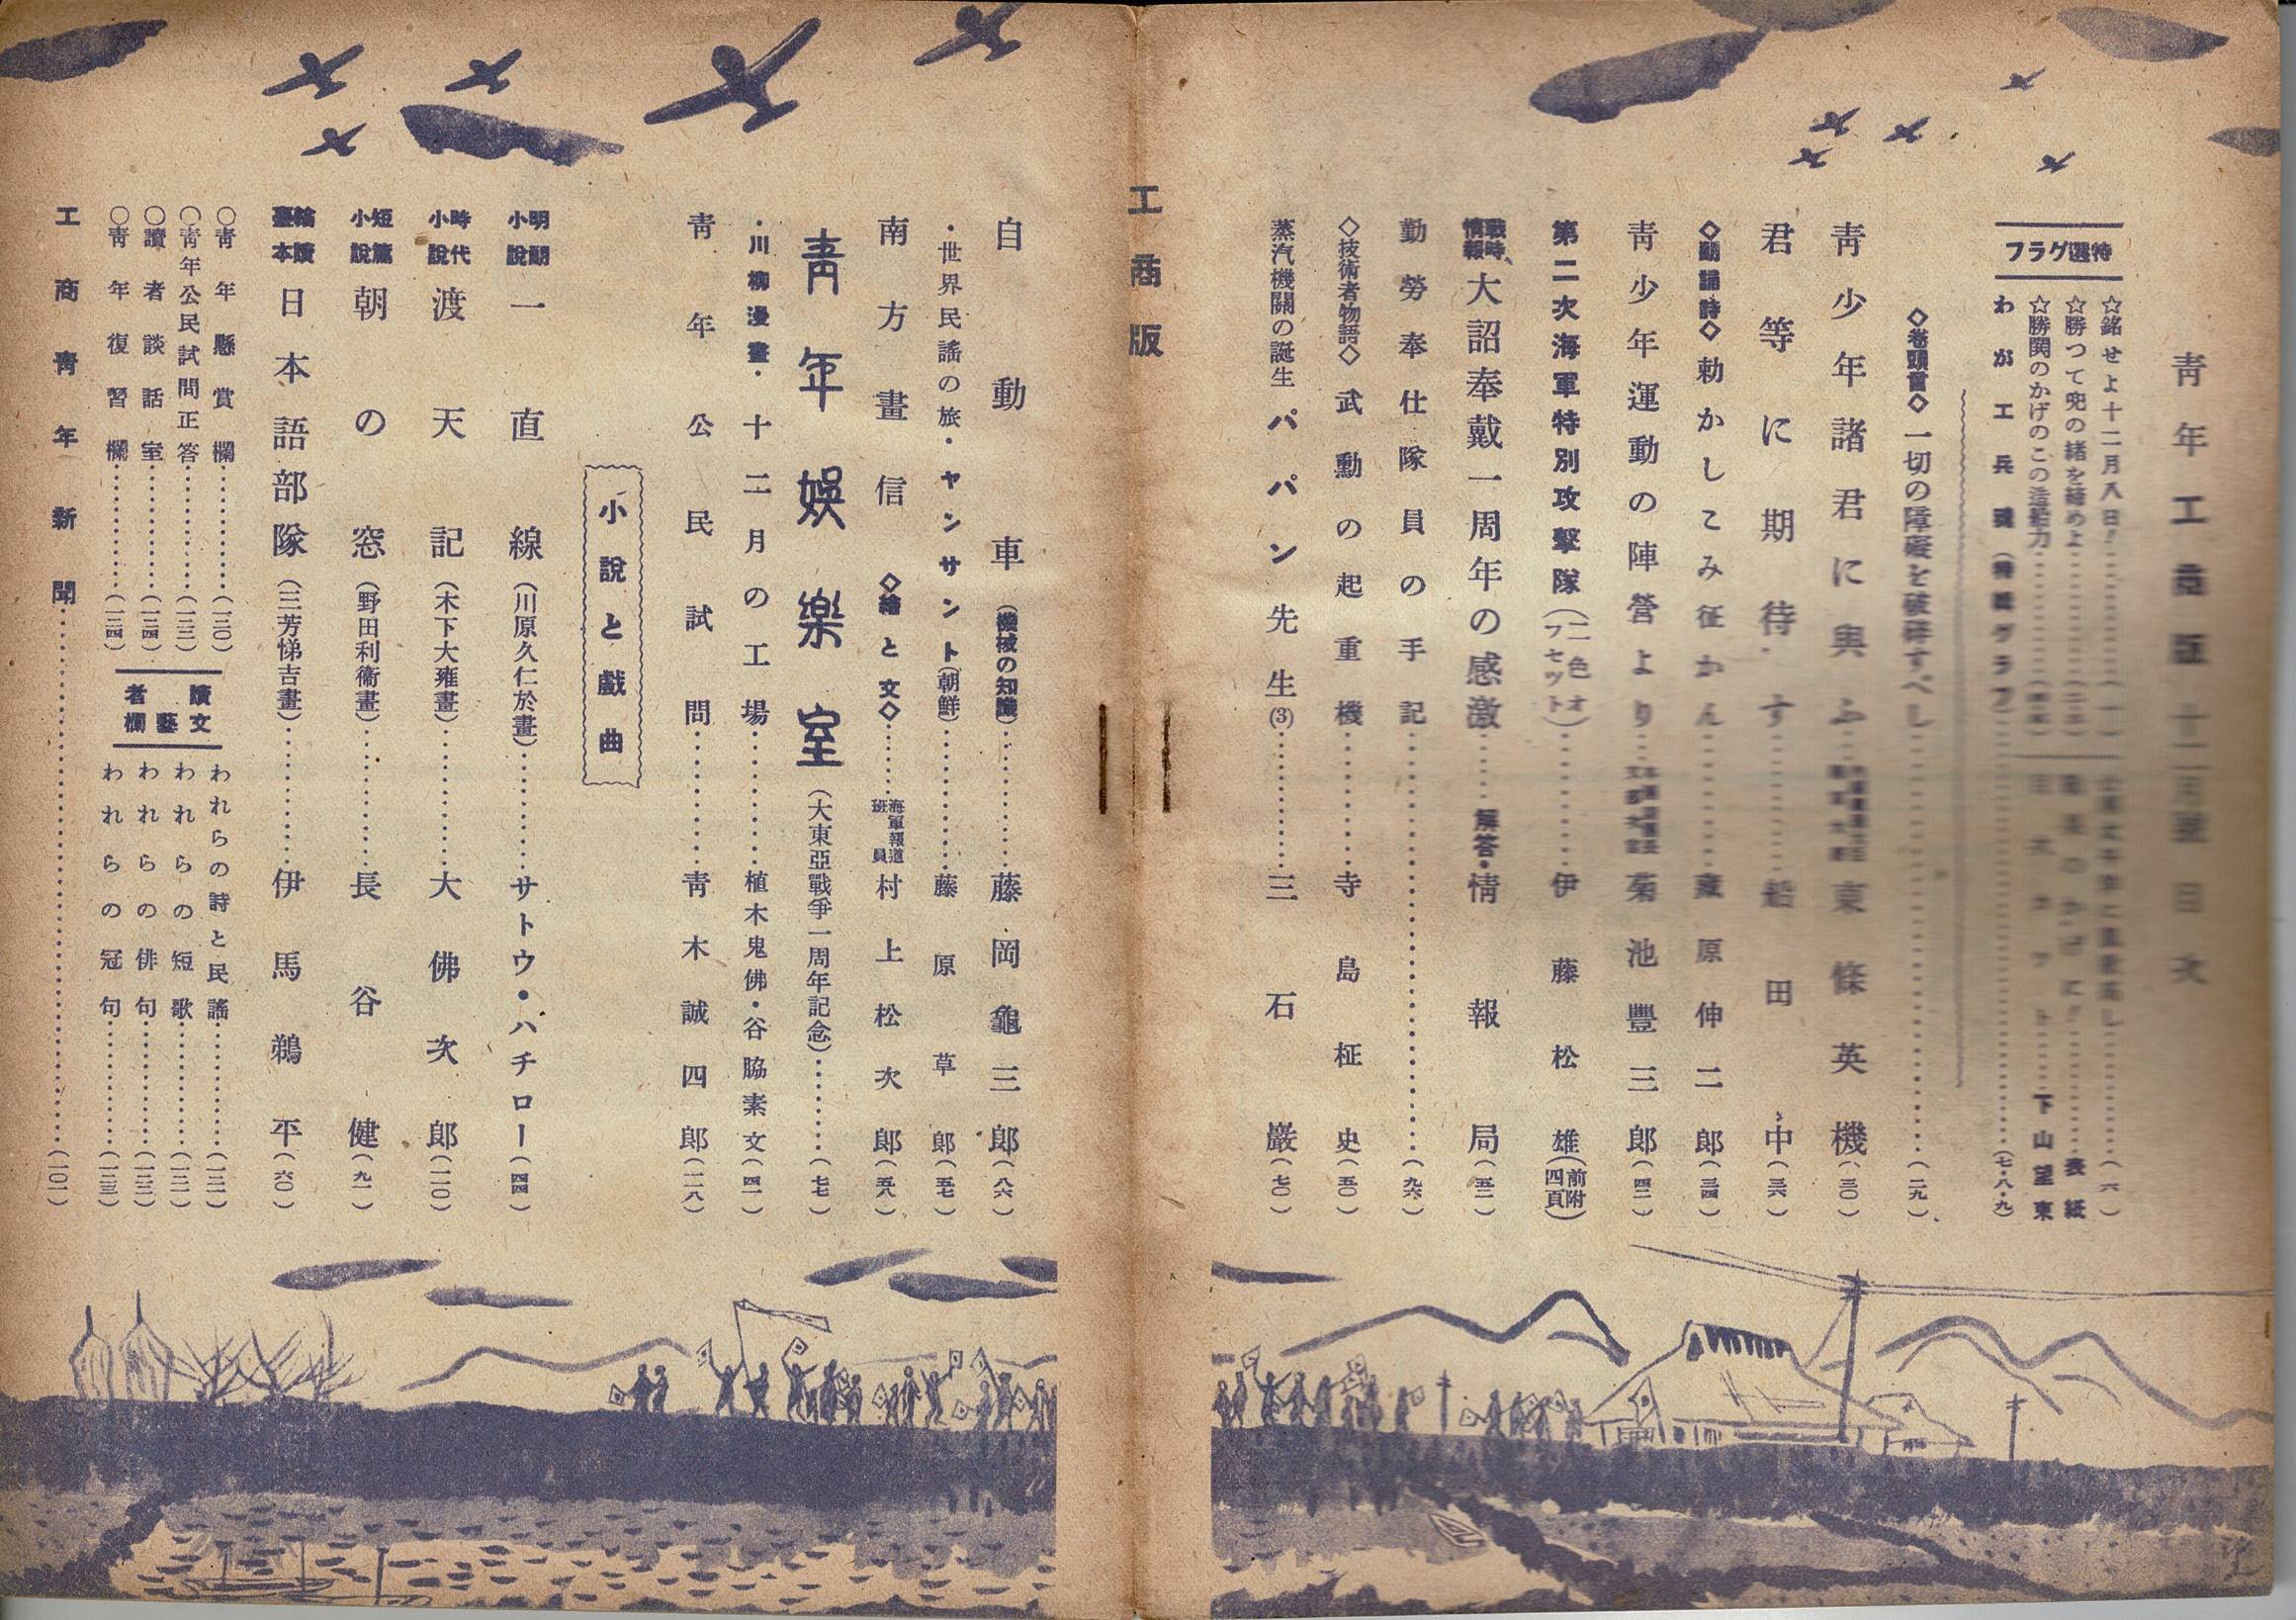 青年工商版十二月號目次
特選グラフ
☆銘せよ十二月八日!……(一)
☆勝つて兜の緒を締めよ……
☆勝鬨のかげのこの造船力……
わが工兵魂(特選グラフ)……(七・八・九)
……(六)
……表紙
……下山望東
◇卷頭言◇一切の障礙を破碎すべし……(二九)
青少年諸君に與ふ……東條英機(三〇)
君等に期待す……船田中(三六)
◇朗誦詩◇勅かしこみ征かん……藏原伸二郎(三四)
青少年運動の陣營より……菊池豐三郎(四二)
第二次海軍特別攻擊隊(二色オフセツト)……伊藤松雄(前附四頁)
戰時情報、大詔奉戴一周年の感激……解答・情報局(五二)
勤勞奉仕隊員の手記……(九六)
◇技術者物語◇武勳の起重機……寺島柾史(五〇)
蒸汽機關の誕生パパン先生(3)……三石巖(七〇)
工商版
自動車(機械の知識)……藤岡龜三郎(八六)
・世界民謠の旅・ヤンサント(朝鮮)……藤原草郎(五七)
南方畫信◇繪と文◇……海軍報道班員村上松次郎(五八)
青年娛樂室(大東亞戰爭一周年記念)……(七七)
・川柳漫畫・十二月の工場……植木鬼佛・谷脇素文(四一)
青年公民試問……青木誠四郎(二八)
小說と戲曲
明朗小說一直線(川原久仁於畫)……サトウ・ハチロー(四四)
時代小說渡天記(木下大雍畫)……大佛次郎(一一〇)
短篇小說朝の窓(野田利衞畫)……長谷健(九一)
輪讀臺本日本語部隊(三芳悌吉畫)……伊馬鵜平(六〇)
○青年懸賞欄……(一二〇)
○青年公民試問正答……(一二三)
○讀者談話室……(一二四)
○青年復習欄……(一二四)
讀者文藝欄
われらの詩と民謠……(一二一)
われらの短歌……(一二一)
われらの俳句……(一二二)
われらの冠句……(一二三)
工商青年新聞……(一〇一)